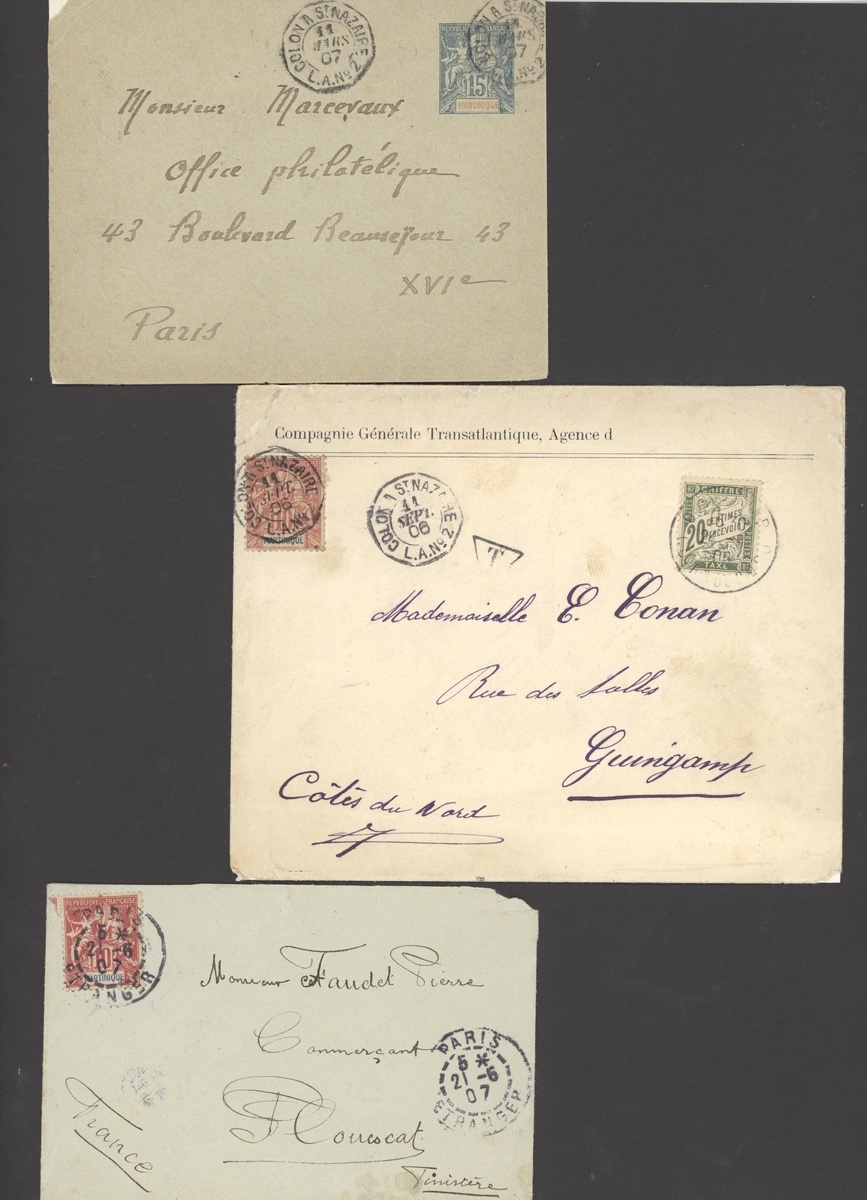 COLON A ST NAZAIRE
11
MARS
07
L.A.No 2
REPUBLIQUE FRANÇAISE
15
MARTINIQUE
Monsieur Marcevaux
Office philatélique
43 Boulevard Beauséjour 43
XVIe
Paris
Compagnie Générale Transatlantique, Agence d
COLON A ST NAZAIRE
11
06
L.A.No
MARTINIQUE
COLON A ST NAZAIRE
11
SEPT.
06
L.A.No 2
T
CHIFFRE
20 CENTIMES
PERCEVOIR
TAXE
Mademoiselle E. Conan
Rue des Salles
Guingamp
Côtes du Nord
REPUBLIQUE FRANÇAISE
PARIS
5 *
21 -6
07
10
MARTINIQUE
ETRANGER
Monsieur Faudet Pierre
Commerçant
PARIS
5 *
21 -6
07
ETRANGER
Plouescat
France
Finistère